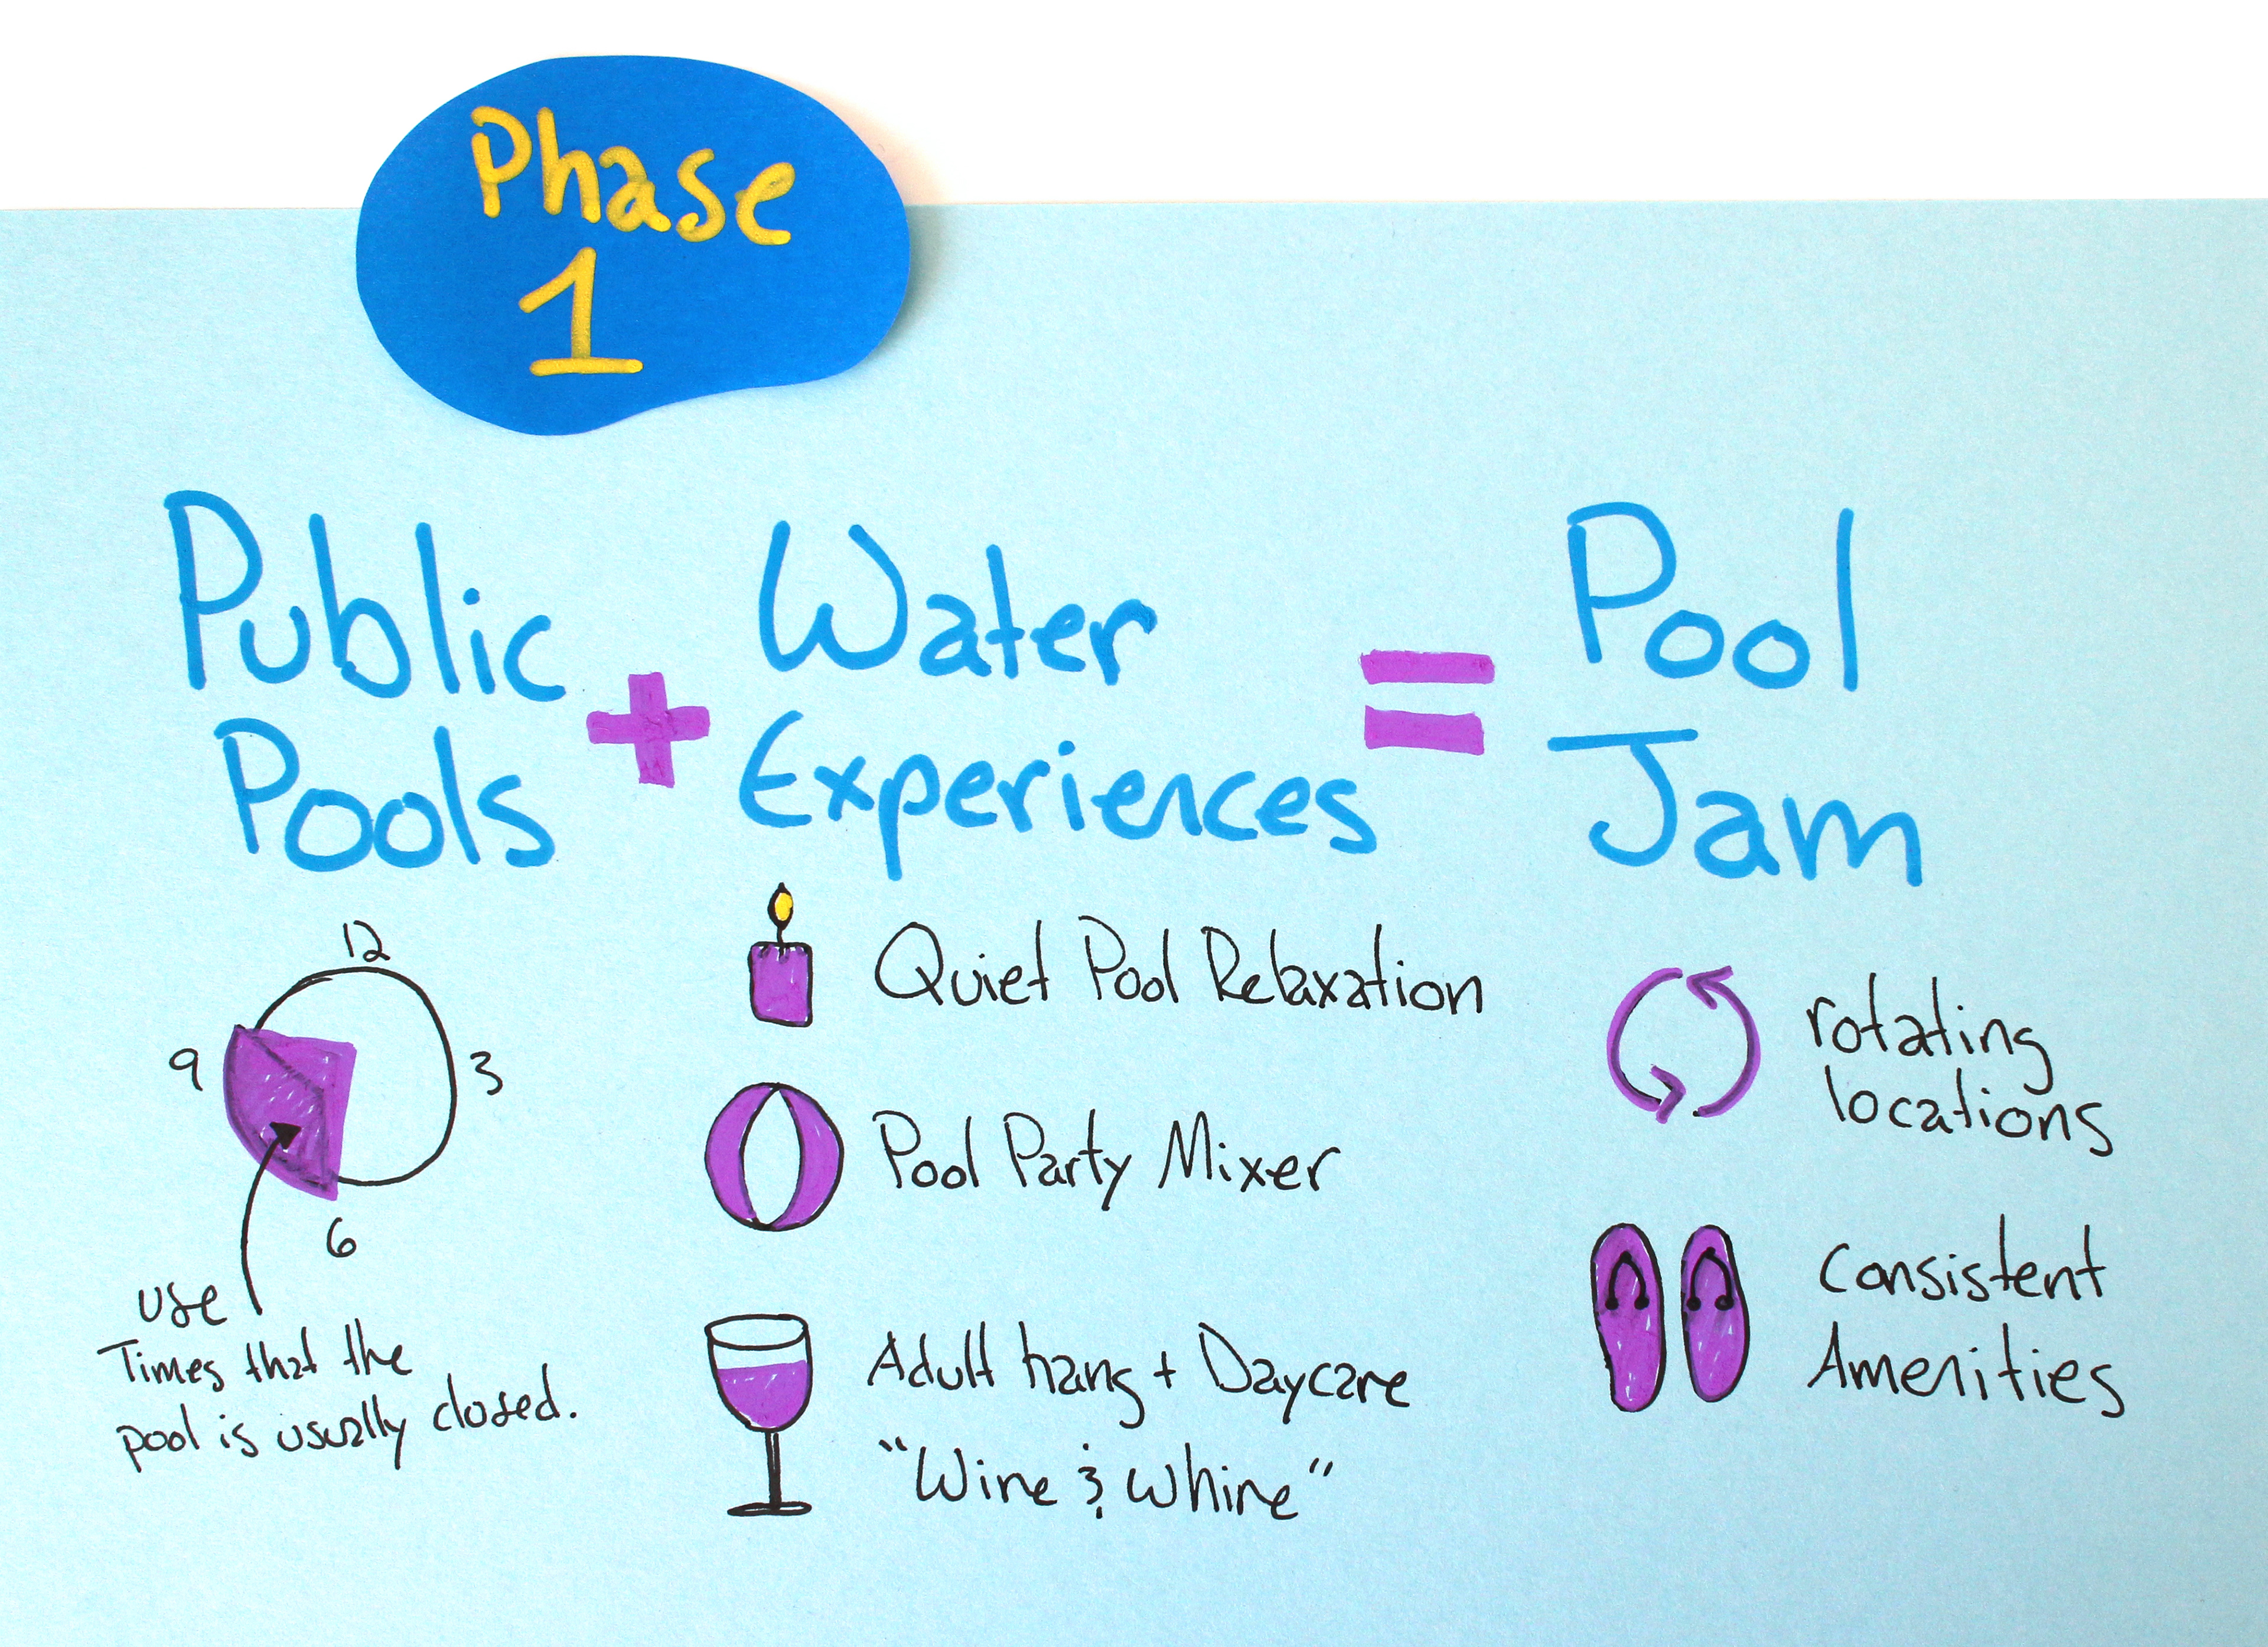 Phase
1
Public
Pools
+
Water
Experiences
=
Pool
Jam
12
9
3
6
use
Times that the
pool is usually closed.
Quiet Pool Relaxation
Pool Party Mixer
Adult hang + Daycare
"Wine & Whine"
rotating
locations
Consistent
Amenities